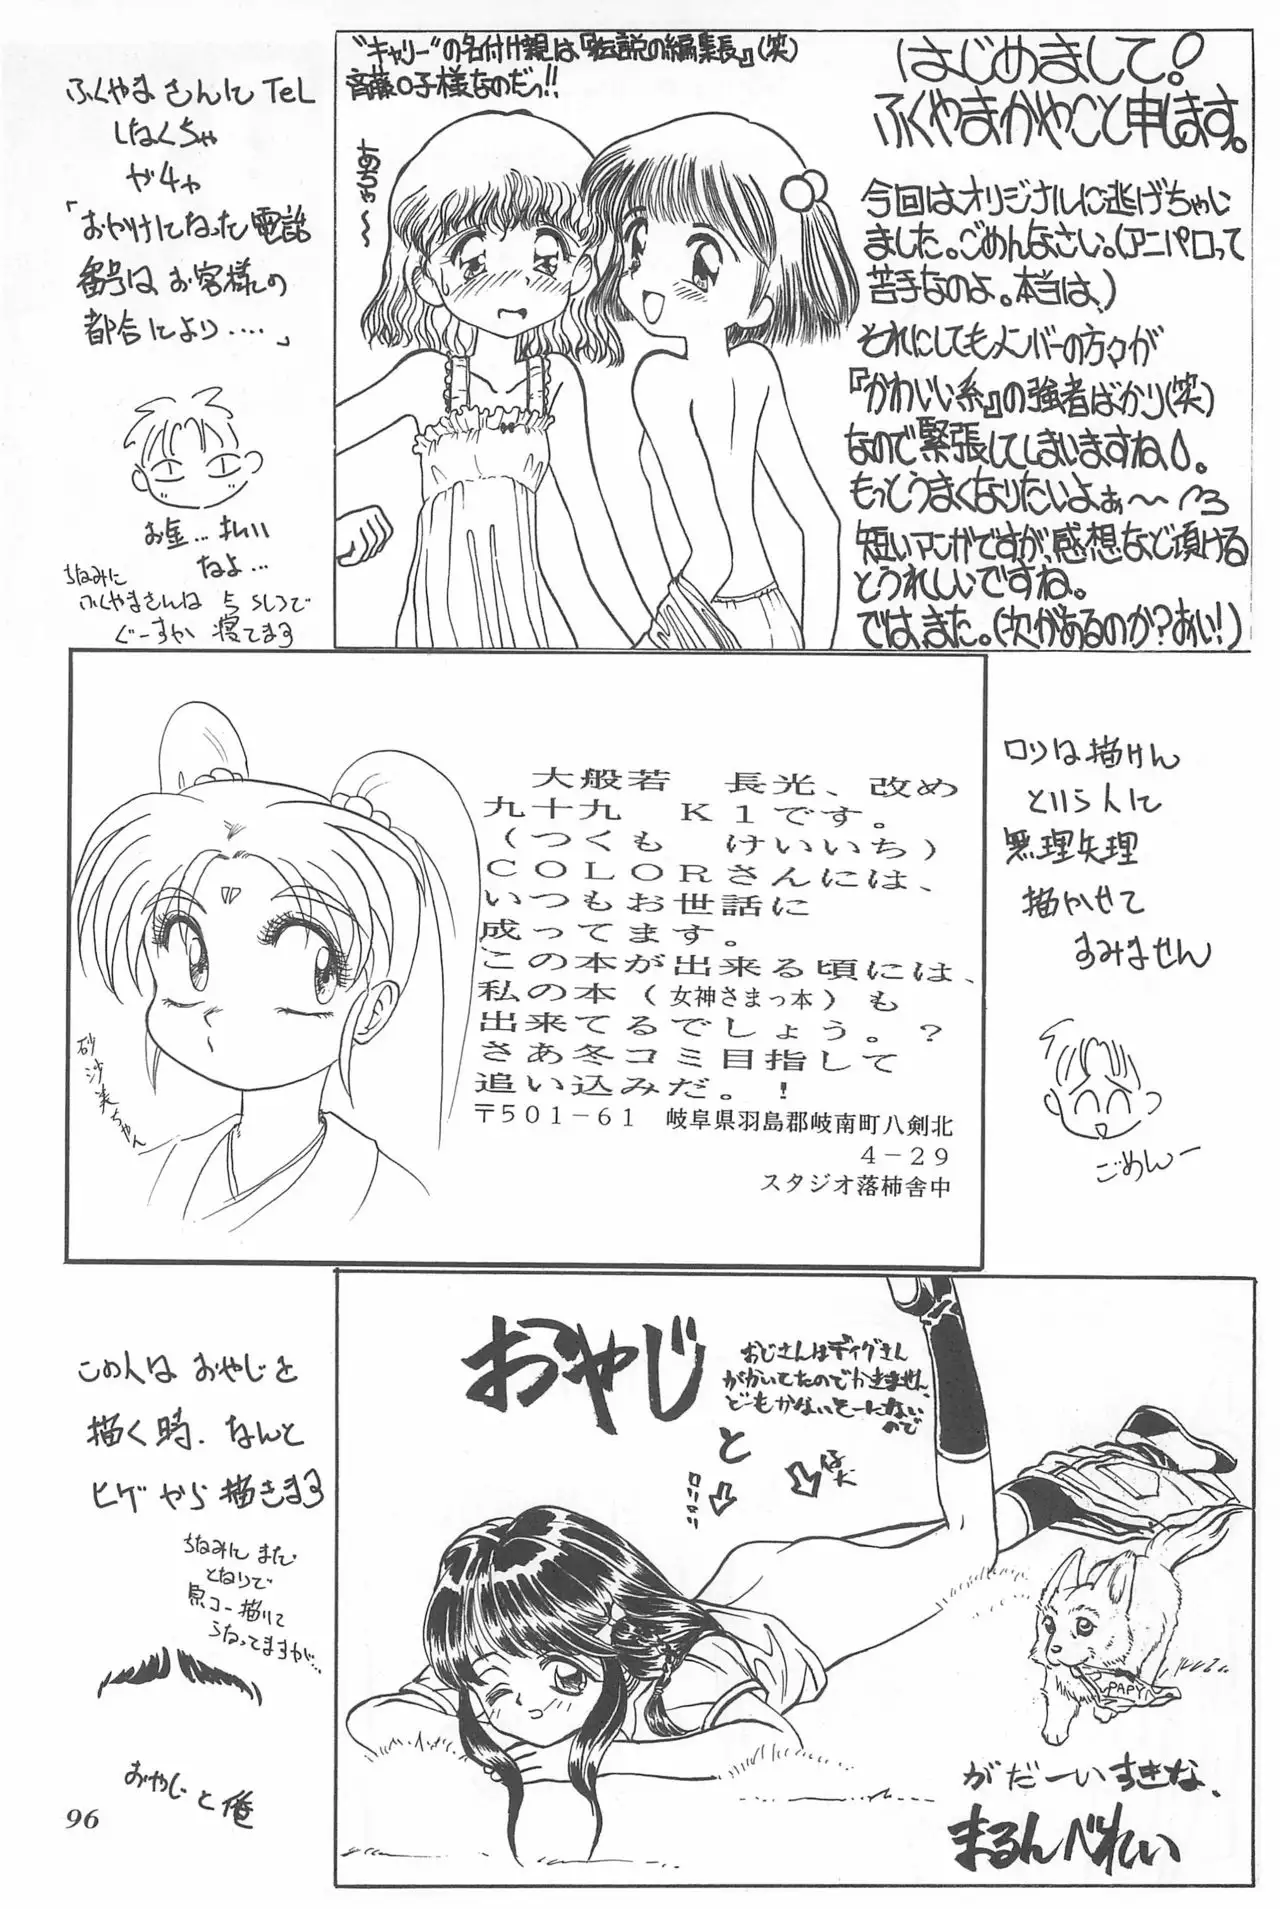 "キャリー"の名付け親は、『伝説の編集長』(笑)
斉藤○子様なのだっ!!
あちゅ〜
はじめまして!
ふくやまかやこと申します。
今回はオリジナルに逃げちゃい
ました。ごめんなさい。(アニパロって
苦手なのよ。本当は、)
それにしてもメンバーの方々が
『かわいい系』の強者ばかり(笑)
なので緊張してしまいますね。
もっとうまくなりたいよぉ〜
短いマンガですが、感想など頂ける
とうれしいですね。
では、また。(次があるのか?おい!)
ふくやまさんにTEL
しなくちゃ
ガチャ
「おかけになった電話
番号は お客様の
都合により‥‥」
お金…払い
なよ…
ちなみに
ふくやまさんは うしろで
ぐーすか 寝てまる
大般若 長光、改め
九十九 K1です。
(つくも けいいち)
COLORさんには、
いつもお世話に
成ってます。
この本が出来る頃には、
私の本(女神さまっ本)も
出来てるでしょう。?
さあ冬コミ目指して
追い込みだ。!
〒501-61 岐阜県羽島郡岐南町八剣北
4-29
スタジオ落柿舎中
砂沙美ちゃん
ロリは描けん
という人に
無理矢理
描かせて
すみません
ごめんー
おやじ
と
おじさんはディグさん
がかいてたのでかきません
どーもかないそーにない
ので
ロリロリ
ぽち
PAPY
がだーいすきな、
まるんべれい
この人は おやじを
描く時、なんと
ヒゲから描きまる
ちなみに また
となりで
原コー描いて
うなってますが…
おやじと俺
96